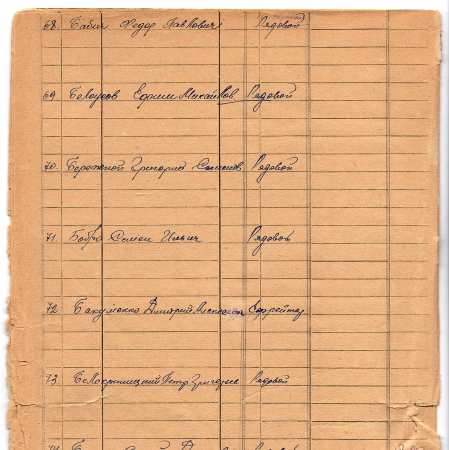 68. Бабич Федор Павлович Рядовой
69 Белоусов Ефим Михайлов. Рядовой
70. Бережной Григорий Рядовой
71. Бобро Семен Ильич Рядовой
72 Бакуменко Дмитрий Ефрейтор
73 Белокриницкий Петр Григорьев Рядовой